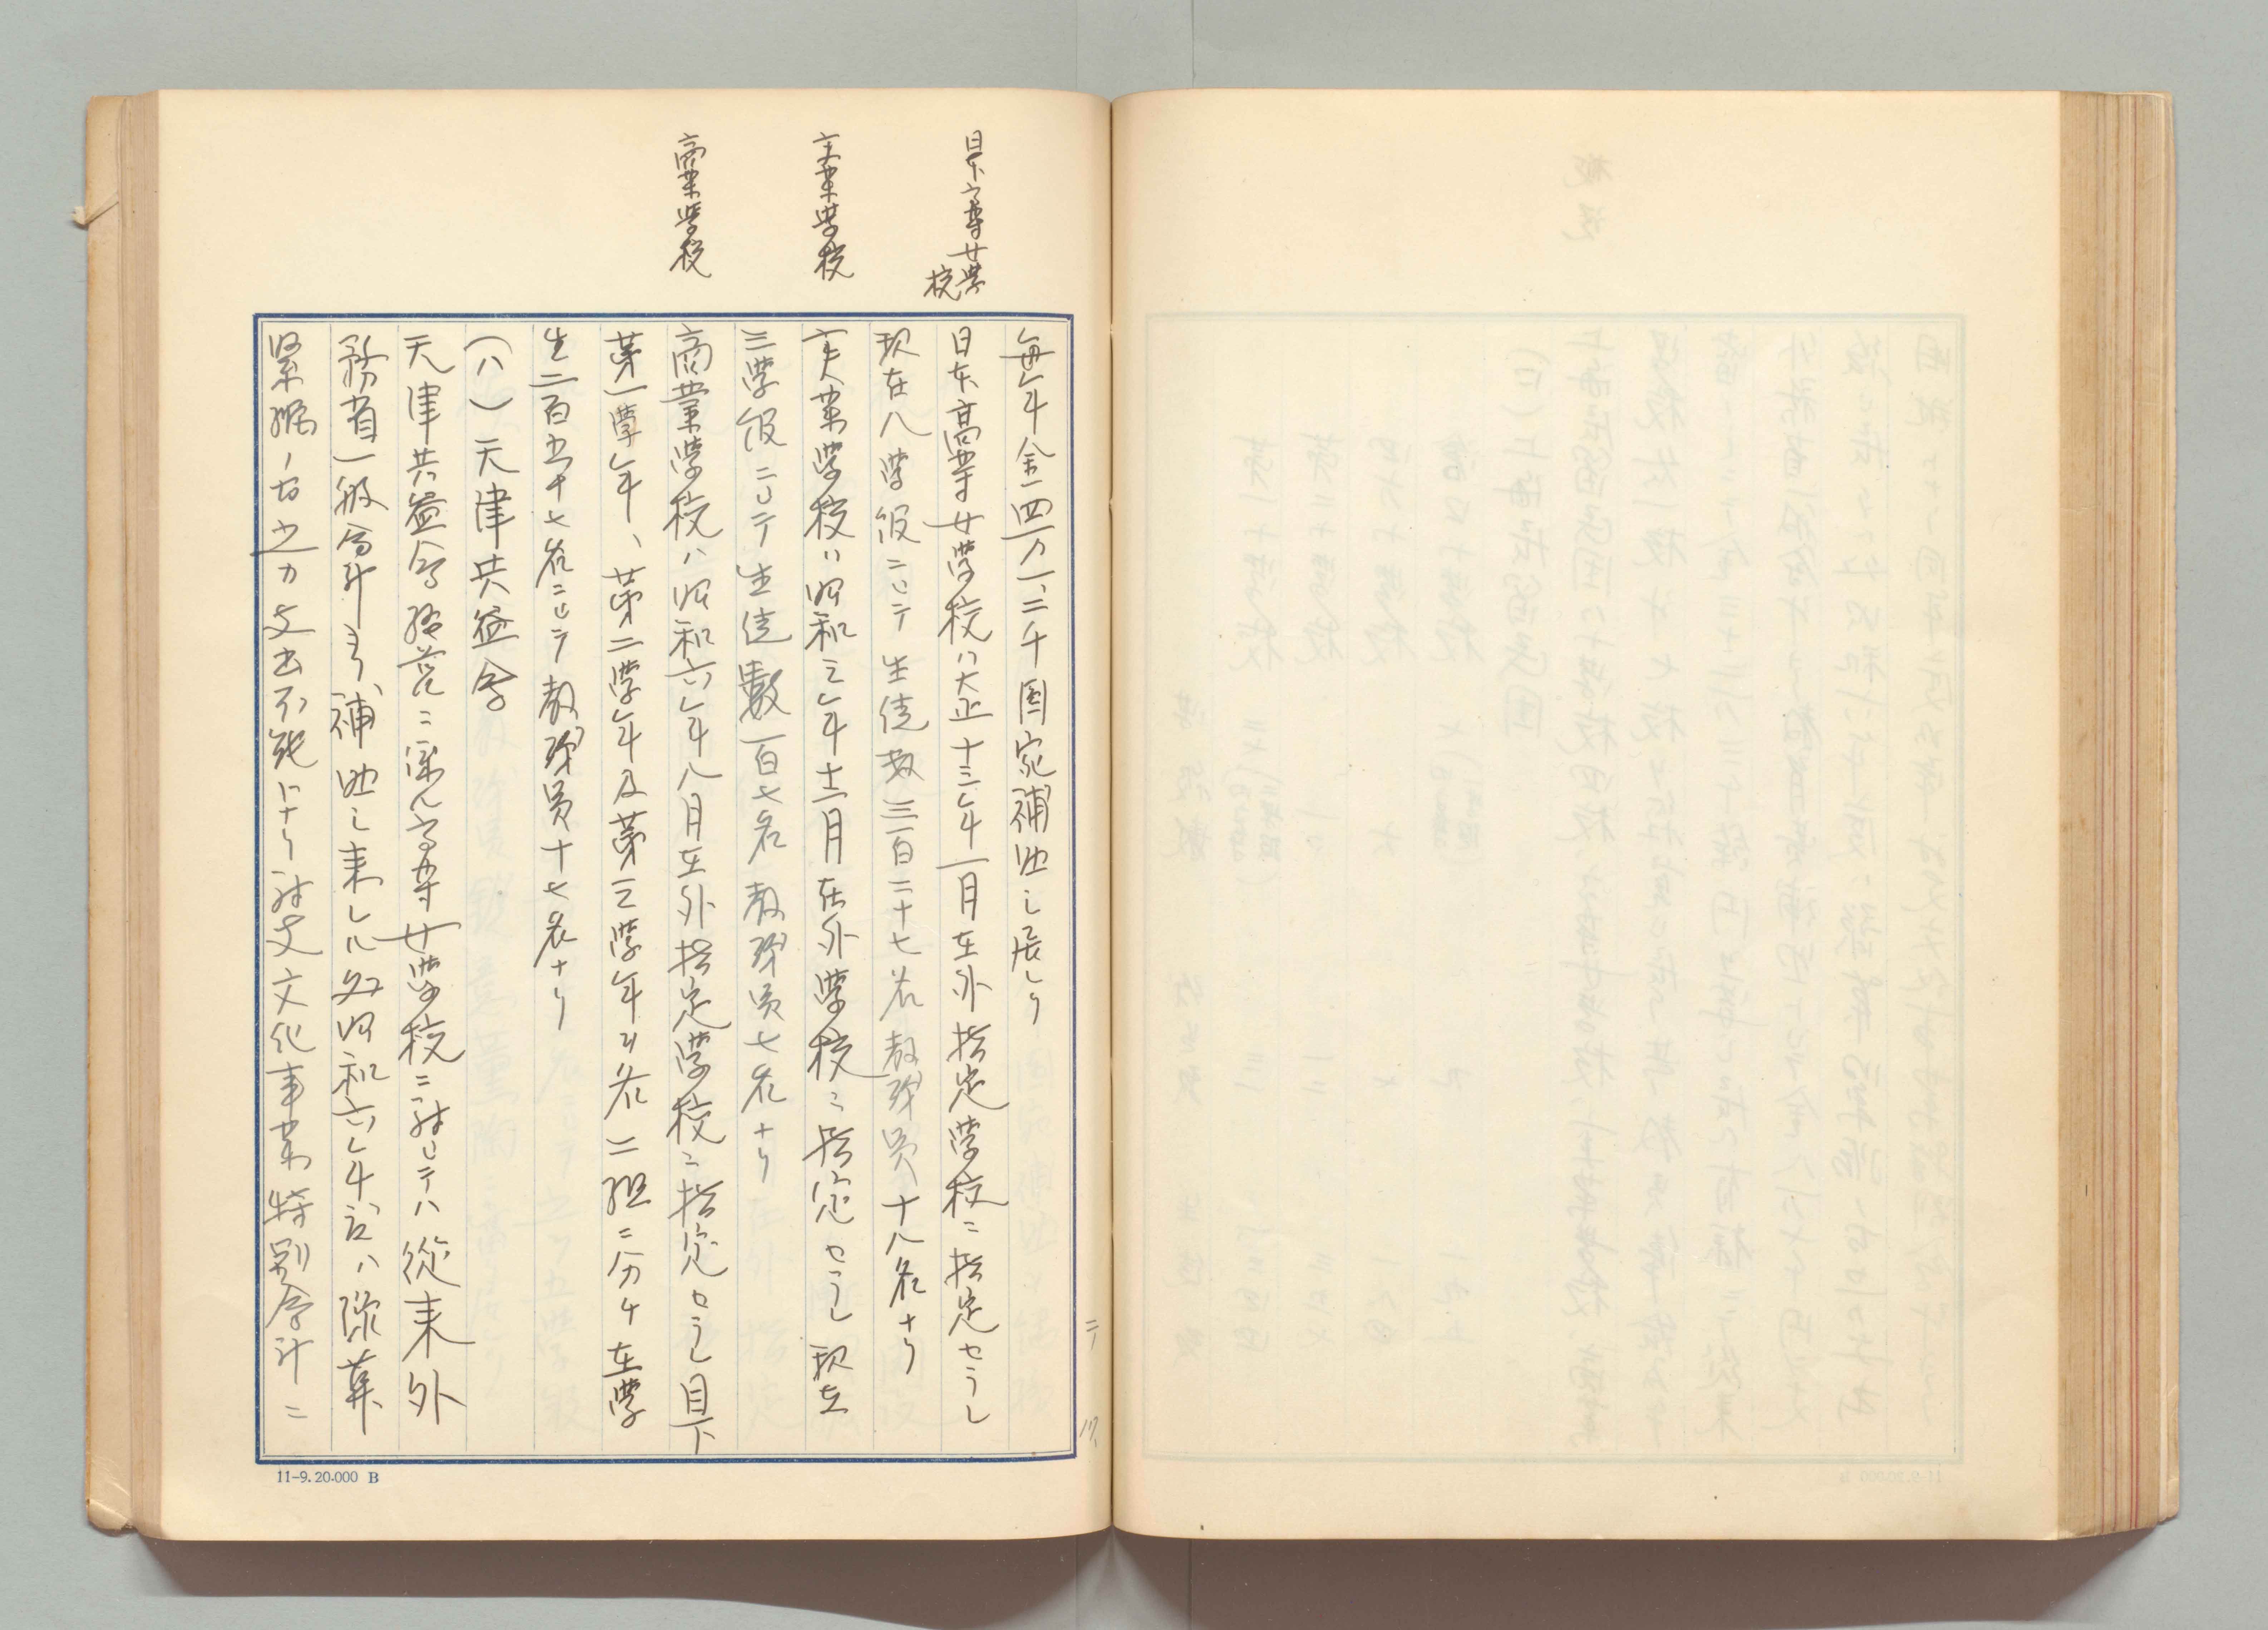 日本高等女学
校
実業学校
商業学校
毎年金四万一、二千国家補助シ居レリ
日本高等女学校ハ大正十三年一月在外指定学校ニ指定セラレ
現在八学級ニシテ生徒数三百二十七名教職員十八名ナリ
実業学校ハ昭和三年十二月在外学校ニ指定セラレ現在
三学級ニシテ生徒数一百七名教職員七名ナリ
商業学校ハ昭和六年八月在外指定学校ニ指定セラレ目下
第一学年、第二学年及第三学年ヲ各二組ニ分ケ在学
生二百五十七名ニシテ教職員十七名ナリ
(ハ)天津共益会
天津共益会経営ニ係ル高等女学校ニ対シテハ従来外
務省一般会計ヨリ補助シ来レル処昭和六年度ハ際算
緊縮ノ為之カ支出不能トナリ対支文化事業特別会計ニ
二ノ
17
11-9.20.000 B